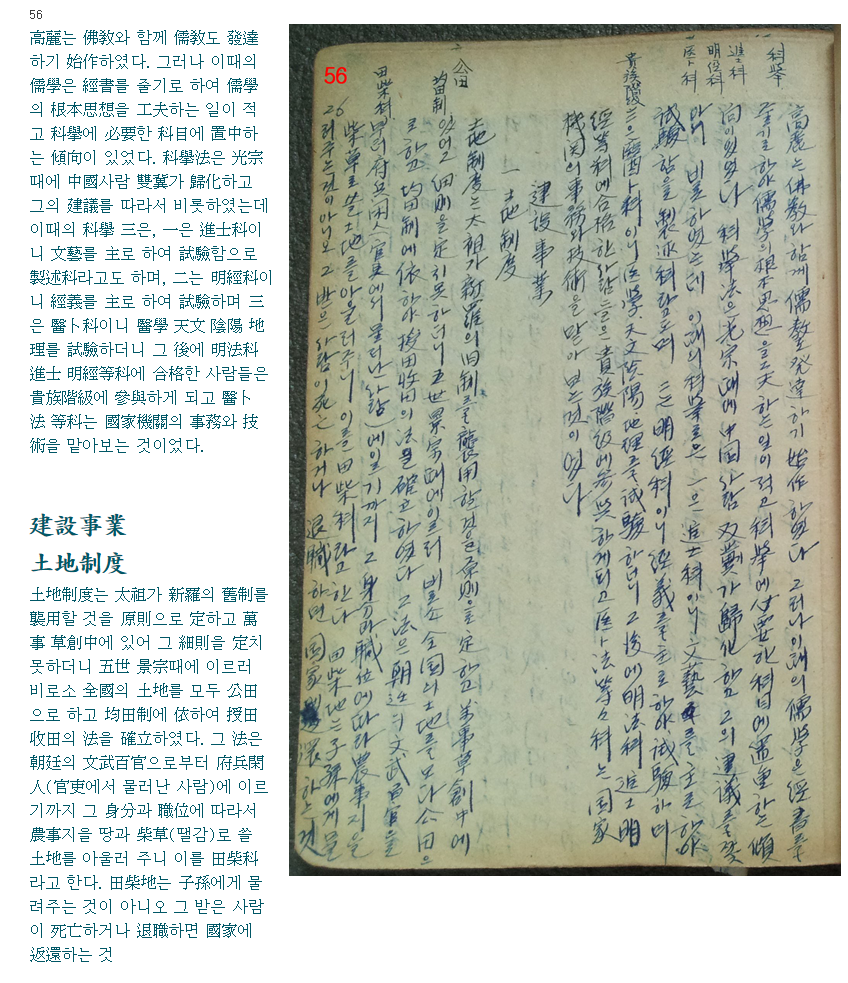 56
高麗는 佛敎와 함께 儒敎도 發達
하기 始作하였다. 그러나 이때의
儒學은 經書를 줄기로 하여 儒學
의 根本思想을 工夫하는 일이 적
고 科擧에 必要한 科目에 置中하
는 傾向이 있었다. 科擧法은 光宗
때에 中國사람 雙冀가 歸化하고
그의 建議를 따라서 비롯하였는데
이때의 科擧 三은, 一은 進士科이
니 文藝를 主로 하여 試驗함으로
製述科라고도 하며, 二는 明經科이
니 經義를 主로 하여 試驗하며 三
은 醫卜科이니 醫學 天文 陰陽 地
理를 試驗하더니 그 後에 明法科
進士 明經等科에 合格한 사람들은
貴族階級에 參與하게 되고 醫卜
法 等科는 國家機關의 事務와 技
術을 맡아보는 것이었다.
建設事業
土地制度
土地制度는 太祖가 新羅의 舊制를
襲用할 것을 原則으로 定하고 萬
事 草創中에 있어 그 細則을 定치
못하더니 五世 景宗때에 이르러
비로소 全國의 土地를 모두 公田
으로 하고 均田制에 依하여 授田
收田의 法을 確立하였다. 그 法은
朝廷의 文武百官으로부터 府兵閑
人(官吏에서 물러난 사람)에 이르
기까지 그 身分과 職位에 따라서
農事지을 땅과 柴草(땔감)로 쓸
土地를 아울러 주니 이를 田柴科
라고 한다. 田柴地는 子孫에게 물
려주는 것이 아니오 그 받은 사람
이 死亡하거나 退職하면 國家에
返還하는 것
56
科擧
進科
明經科
医卜科
貴族階級
高麗는 佛敎와 함께 儒敎 發達하기 始作하였다 그러나 이때의 儒學은 經書를
줄기로 하야 儒學의 根本思想을 工夫하는 일이 적고 科擧에 必要한 科目에 置重하는 傾
向이 있었다 科擧法은 光宗때에 中国사람 双冀가 歸化함 그의 建議를 쫓
아 비롯하였는데 이때의 科擧 은 一은 進士科이니 文藝를 主로 하야
試驗함을 製述科라고도며 二는 明經科이니 經義를 主로 하야 試驗하며
三은 醫卜科이니 医學 天文 陰陽 地理를 試驗하더니 그 後에 明法科 進士 明
經等科에 合格한 사람들은 貴族階級에 參與하게 되고 医卜法等 科는 国家
機関의 事務와 技術을 맡아보는 것이였다
建設事業
一 土地制度
土地制度는 太祖가 新羅의 旧制를 襲用할 것을 原則으로 定함 萬事草創中에
公田
均田制
있어 그 細則을 定치 못하더니 五世 景宗때에 이르러 비로소 全国의 土地를 모다 公田으
로 함 均田制에 依하야 授田收田의 法을 確立하였다 그 法은 朝廷의 文武百官을
田柴科
부터 府兵閑人(官吏에서 물러난 사람)에 이르기까지 그 身分과 職位에 따라 農事지을
柴草로 쓸 土地를 아울러 주니 이를 田柴科라고 한다 田柴地는 子孫에게 물
26
려주는 것이 아니오 그 받은 사람이 死亡하거나 退職하면 国家 返還하는 것